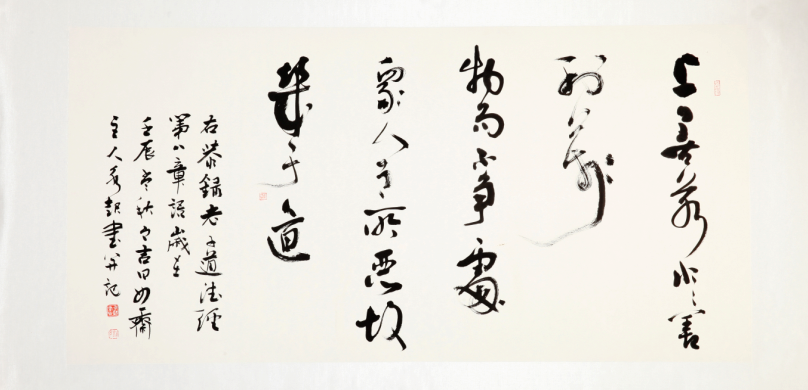 上善若水〻善
利萬
物而不爭處
眾人之所惡故
幾于道
右恭錄老子道德經
第八章語歲在
壬辰孟秋之吉日如齋
主人書并記